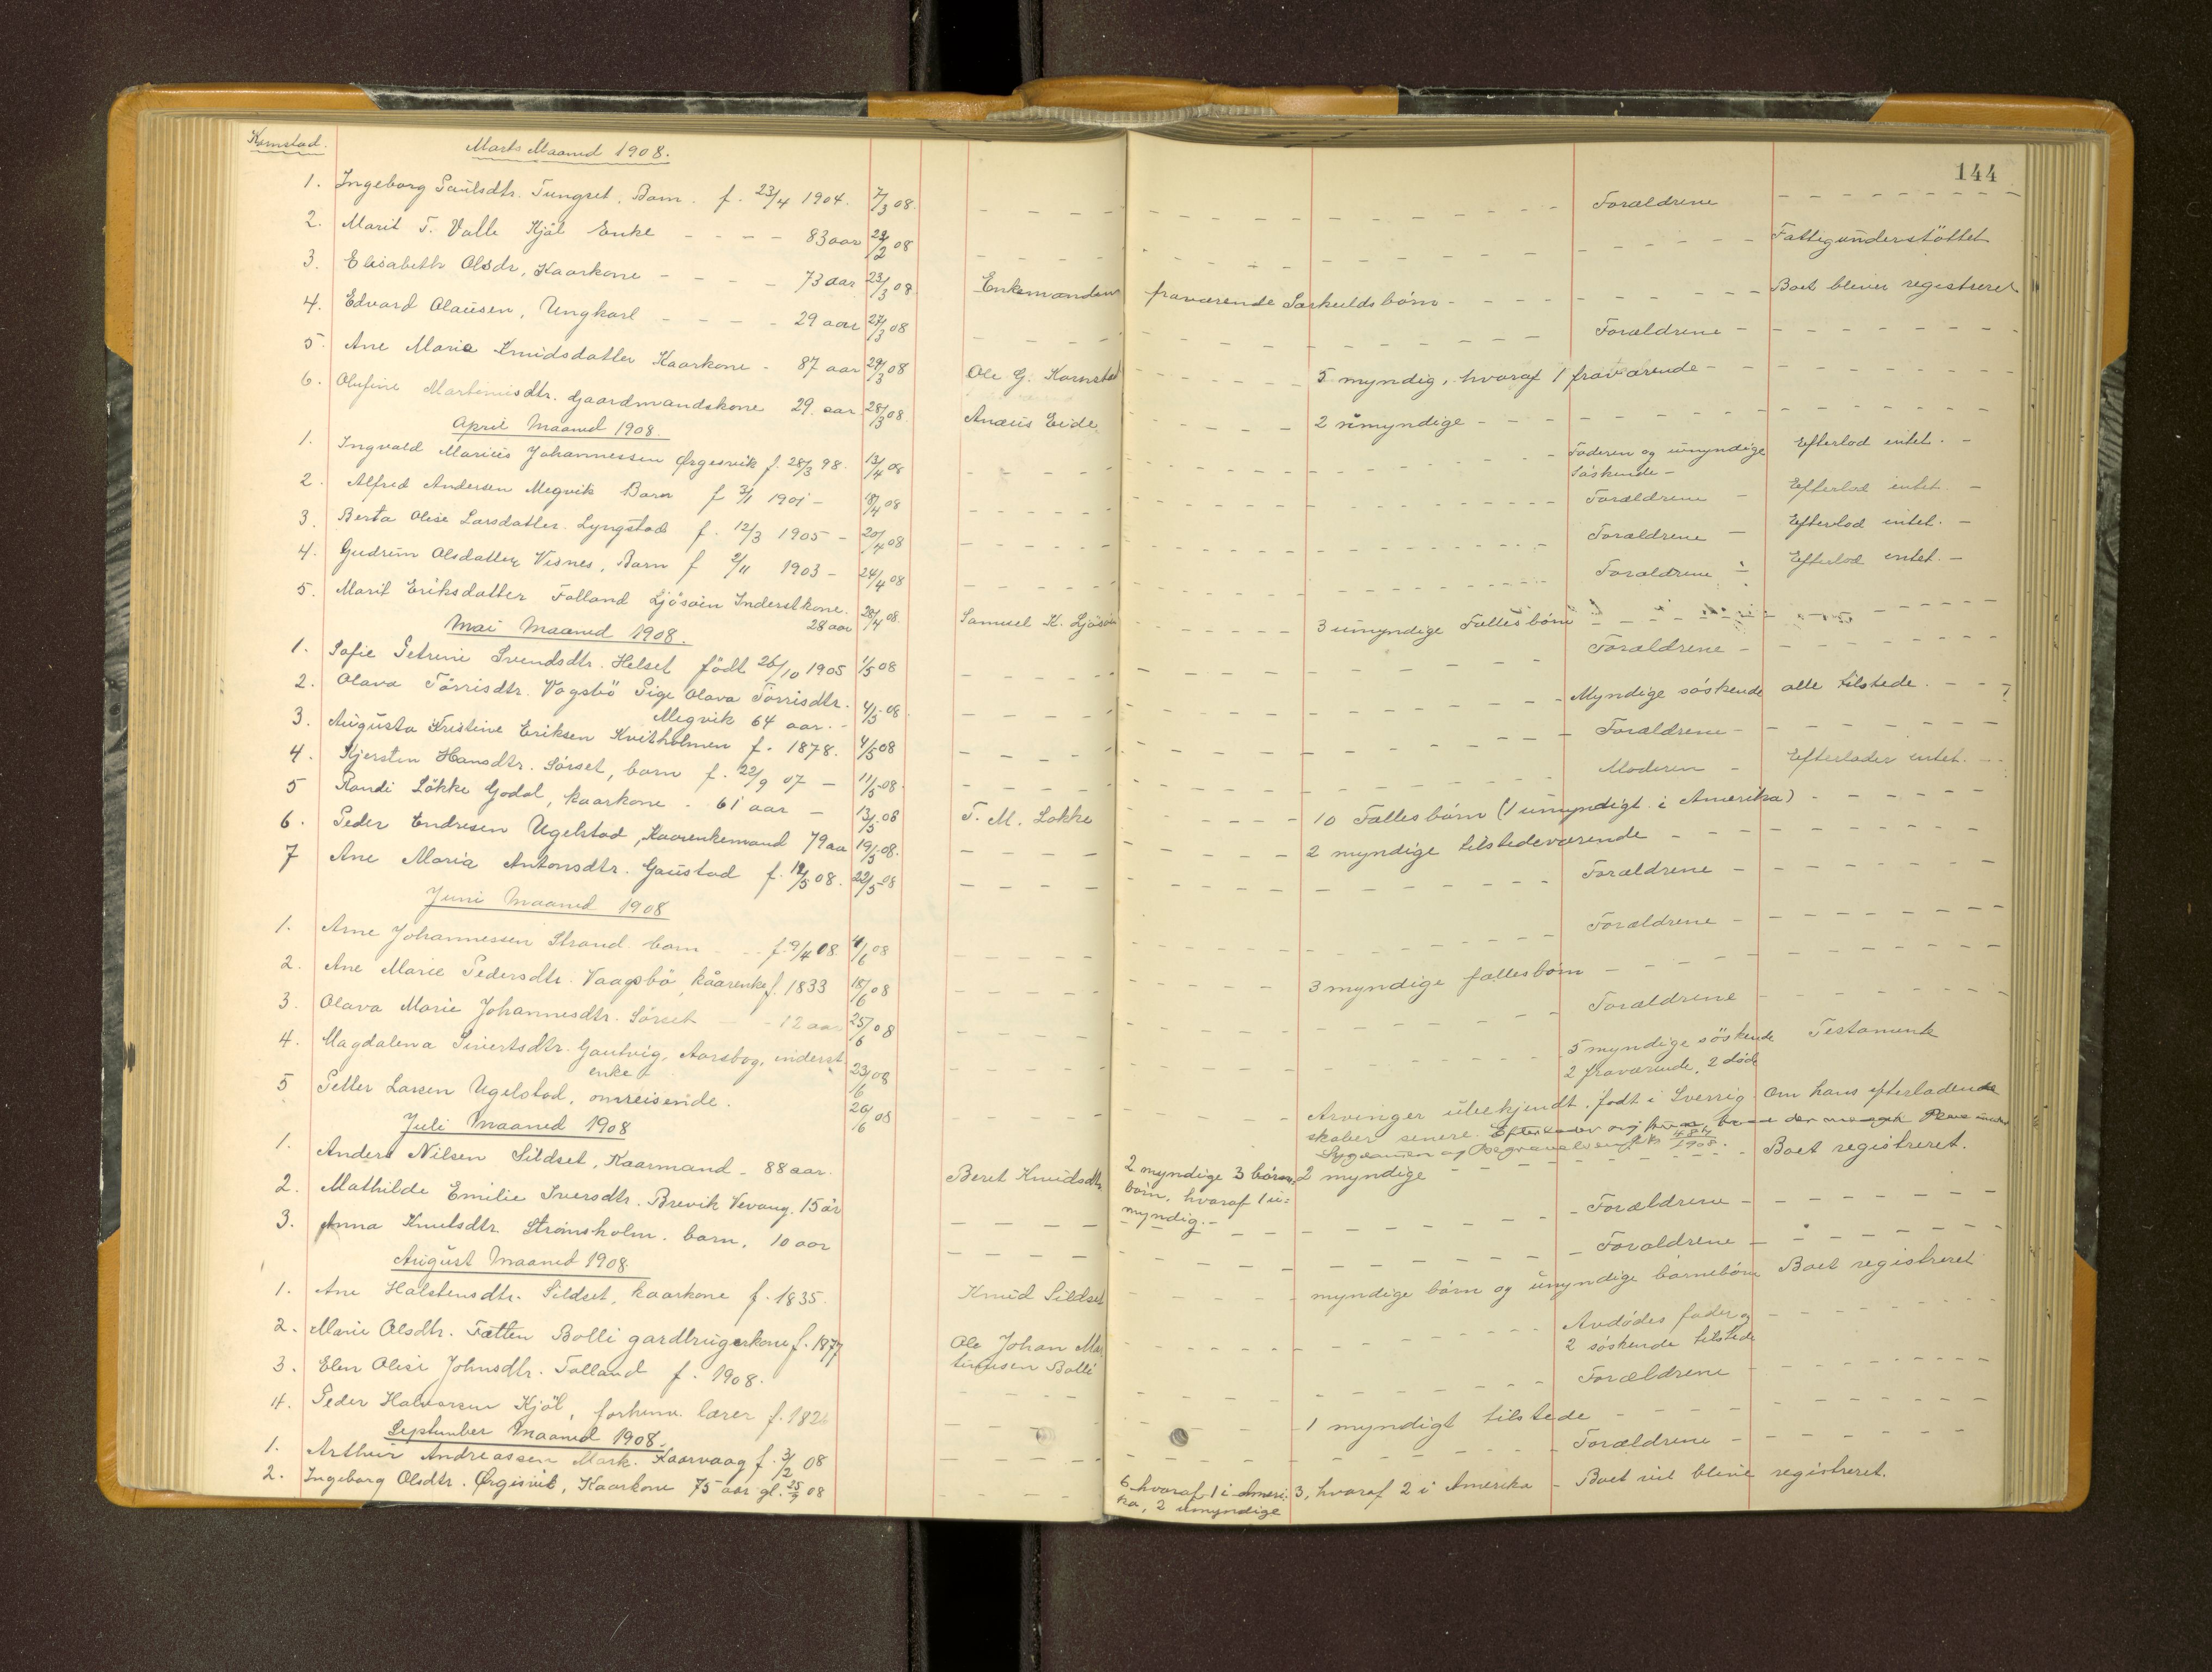 Kornstad. Marts Maaned 1908. 144
1. Ingeborg Paulsdtr. Tungset, Barn. f. 23/4 1904. 7/3 08. Forældrene
2. Marit T. Valle Kjöl Enke 83 aar 08 Fattigunderstöttet
3. Elisabeth Olsdr, Kaarkone 73 aar 23/3 08. Enkemanden fraværende Særkuldsbörn Boet bliver registreret
4. Edvard Olausen, Ungkarl 29 aar 27/3 08 Forældrene
5. Ane Maria Knudsdatter Kaarkone 87 aar 29/3 08 Ole G. Kornstad 5 myndig, hvoraf 1 fraværende
6. Olufine Martinusdtr. Gaardmandskone 29. aar. 28/3 08 Anæus Eide 2 umyndige
April Maaned 1908.
1. Ingvald Marius Johannessen Ørgesvik f. 28/3 98. 13/4 08 Faderen og umyndige Efterlod intet.
Söskende
2. Alfred Andersen Megvik Barn f 3/1 1901 18/4 08 Forældrene Efterlod intet.
3. Berta Olise Larsdatter. Lyngstad f. 12/3 1905 20/4 08 Forældrene Efterlod intet.
4. Gudrun Olsdatter Visnes, Barn f 2/11 1903 24/4 08 Forældrene Efterlod intet.
5. Marit Eriksdatter Folland Ljösöen Inderstkone. 28/4 08. Samuel K. Ljösöen 3 umyndige Fællesbörn
28 aar
Mai Maaned 1908.
1. Sofie Petrine Svendsdtr. Helset födt 26/10 1905 1/5 08 Forældrene
2. Olava Törrisdtr. Vagsbö Pige Olava Törrisdtr. 4/5 08 Myndige söskende alle tilstede.
Megvik 64 aar.
3. Augusta Kristine Eriksen Kvitholmen f. 1878. 4/5 08 Forældrene
4. Kjersten Hansdtr. Sörset, barn f. 22/9 07 11/5 08. Moderen Efterlader intet.
5 Randi Lökke Godal, kaarkone. 61 aar 13/5 08 T. M. Lökke 10 Fællesbörn (1 umyndigt i Amerika)
6. Peder Endresen Ugelstad, Kaarenkemand 79 aa 19/5 08. 2 myndige tilstedeværende
7 Ane Maria Antonsdtr. Gaustad f. 19/5 08. 22/5 08 Forældrene
Juni Maaned 1908
1. Arne Johannessen Strand barn f. 9/4 08 4/6 08 Forældrene
2. Ane Marie Pedersdtr. Vaagsbö, kåarenke f. 1833 18/6 08 3 myndige fællesbörn
3. Olava Marie Johannesdtr. Sörset 12 aar 25/6 08 Forældrene
4. Magdalena Sivertsdtr. Gautvig, Aarsbog, inderst 23/6 08 5 myndige söskende Testamente
enke 2 fraværende, 2 döde
5 Petter Larsen Ugelstad, omreisende. 20/6 08 Arvinger ubekjendt. födt i Sverrig. Om hans efterladen
skaber senere.
Sygdommen og Begravelsen 1908.
Juli Maaned 1908
1. Anders Nilsen Sildset, Kaarmand 88 aar. Beret Knudsdtr. 2 myndige 3 barne= 2 myndige Boet registreret.
börn, hvoraf 1 u=
myndig.
2. Mathilde Emilie Iversdtr. Brevik Vevang. 15 år Forældrene
3. Anna Knutsdtr. Strömsholm. barn, 10 aar Forældrene
August Maaned 1908.
1. Ane Halstensdtr. Sildset, kaarkone f. 1835. Knud Sildset myndige börn og umyndige barnebörn Boet registreret
2. Marie Olsdtr. Fætten Bolli gardbrugerkone f. 1877 Ole Johan Mar Avdödes fader og
tinusen Bolli 2 söskende tilstede
3. Elen Olise Johnsdtr. Folland f. 1908. Forældrene
4. Peder Halvorsen Kjöl, forhenv. lærer f. 1826 1 myndigt tilstede
September Maaned 1908.
1. Arthur Andreassen Mork. Kaarvaag f. 3/2 08 Forældrene
2. Ingeborg Olsdtr. Ørgisvik, Kaarkone 75 aar gl. 25/9 08 6 hvoraf 1 i Ameri- 3, hvoraf 2 i Amerika Boet vil blive registreret.
ka, 2 umyndige